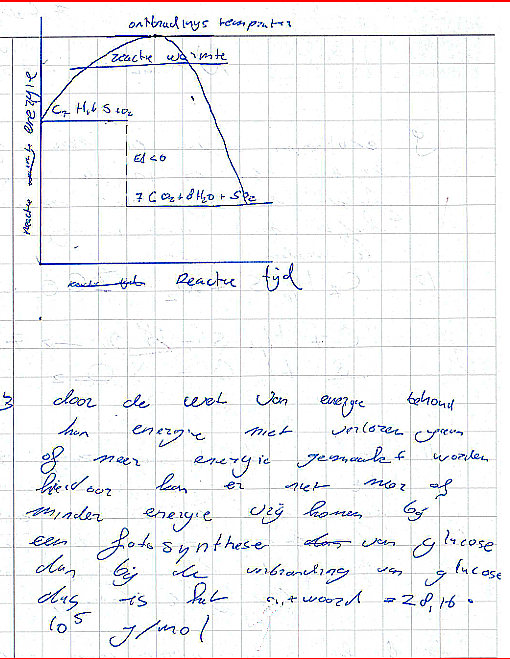 ontbrandings temperatuur
reactie warmte
C7 H16 S + O2
E<0
7 CO2 + 8 H2O + SO2
reactie energie
Reactie tijd
3 door de wet van energie behoud
kan energie niet verloren gaan
of meer energie gemaakt worden
hierdoor kan er niet meer of
minder energie vrij komen bij
een fotosynthese van glucose
dan bij de verbranding van glucose
dus is het antwoord = 28,16 ·
10^5 J/mol